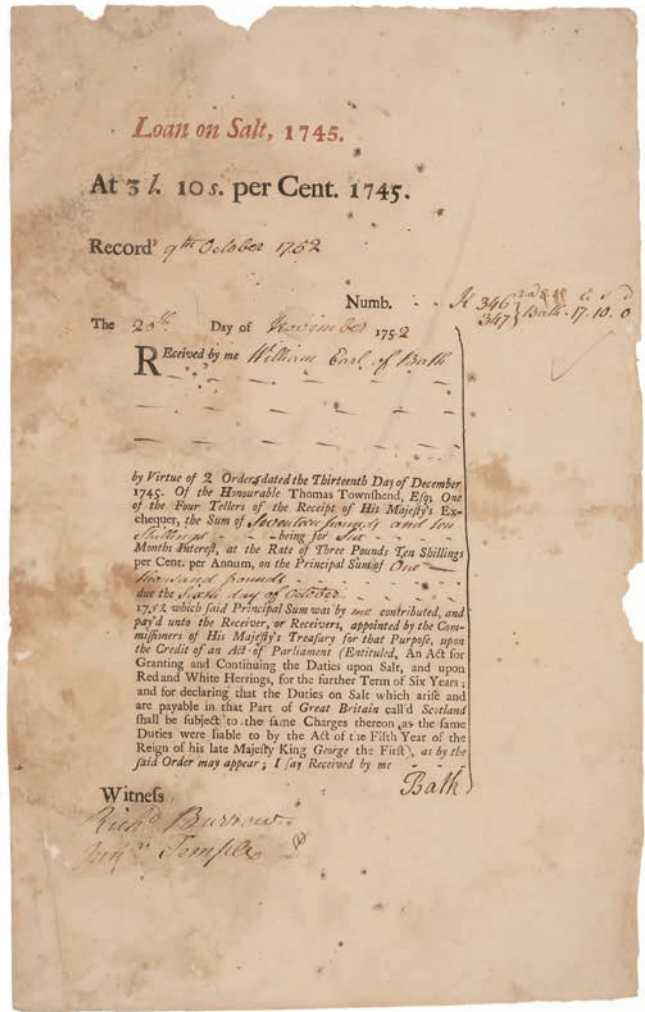 Loan on Salt, 1745.
At 3 l. 10 s. per Cent. 1745.
Record' 9th October 1752
Numb. K 346
347 } Bath - 17. 10. 0
The 20th Day of November 1752
REceived by me William Earl of Bath
by Virtue of 2 Orders dated the Thirteenth Day of December
1745. Of the Honourable Thomas Townshend, Esq; One
of the Four Tellers of the Receipt of His Majesty's Ex-
chequer, the Sum of Seventeen pounds and ten
Shillings - - - being for Six - - -
Months Interest, at the Rate of Three Pounds Ten Shillings
per Cent. per Annum, on the Principal Sum of One
thousand pounds - - -
due the Sixth day of October - - -
1752 which said Principal Sum was by me contributed, and
pay'd unto the Receiver, or Receivers, appointed by the Com-
missioners of His Majesty's Treasury for that Purpose, upon
the Credit of an Act of Parliament (Entituled, An Act for
Granting and Continuing the Duties upon Salt, and upon
Red and White Herrings, for the further Term of Six Years;
and for declaring that the Duties on Salt which arise and
are payable in that Part of Great Britain call'd Scotland
shall be subject to the same Charges thereon as the same
Duties were liable to by the Act of the Fifth Year of the
Reign of his late Majesty King George the First), as by the
said Order may appear; I say Received by me - - -
Bath
Witness
Richd Burrow
Temple